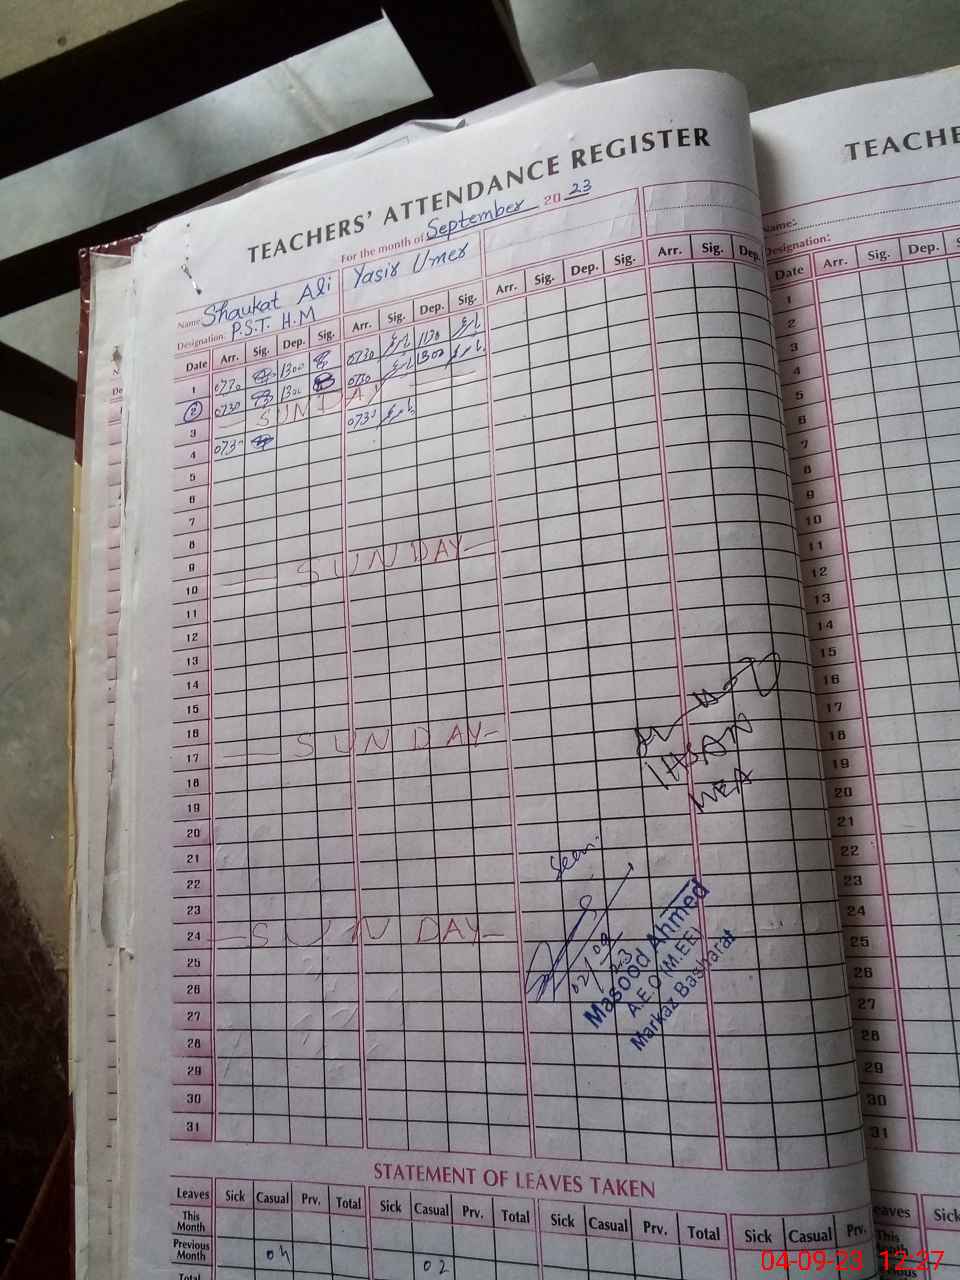 TEACHERS' ATTENDANCE REGISTER
For the month of September 20 23
Name: Shaukat Ali Yasir Umer
Designation: P.S.T. H.M
Date Arr. Sig. Dep. Sig. Arr. Sig. Dep. Sig. Arr. Sig. Dep. Sig. Arr. Sig. Dep.
1 1300 0730 1130
2 0730 1300 0730 1300
3 - SUNDAY
4 0730 0730
5
6
7
8
9
10 - SUNDAY -
11
12
13
14
15
16
17 - SUNDAY -
18
19
20
21
22
23
24 - SUNDAY -
25
26
27
28
29
30
31
IHSAN
MEA
Seen.
02/09/23
Masood Ahmed
A.E.O (M.EE)
Markaz Basharat
STATEMENT OF LEAVES TAKEN
Leaves Sick Casual Prv. Total Sick Casual Prv. Total Sick Casual Prv. Total Sick Casual Prv.
This Month
Previous Month 04 02
Total
TEACHE
Name:
Designation:
Date Arr. Sig. Dep. S
1
2
3
4
5
6
7
8
9
10
11
12
13
14
15
16
17
18
19
20
21
22
23
24
25
26
27
28
29
30
31
eaves Sick
This
04-09-23 12:27